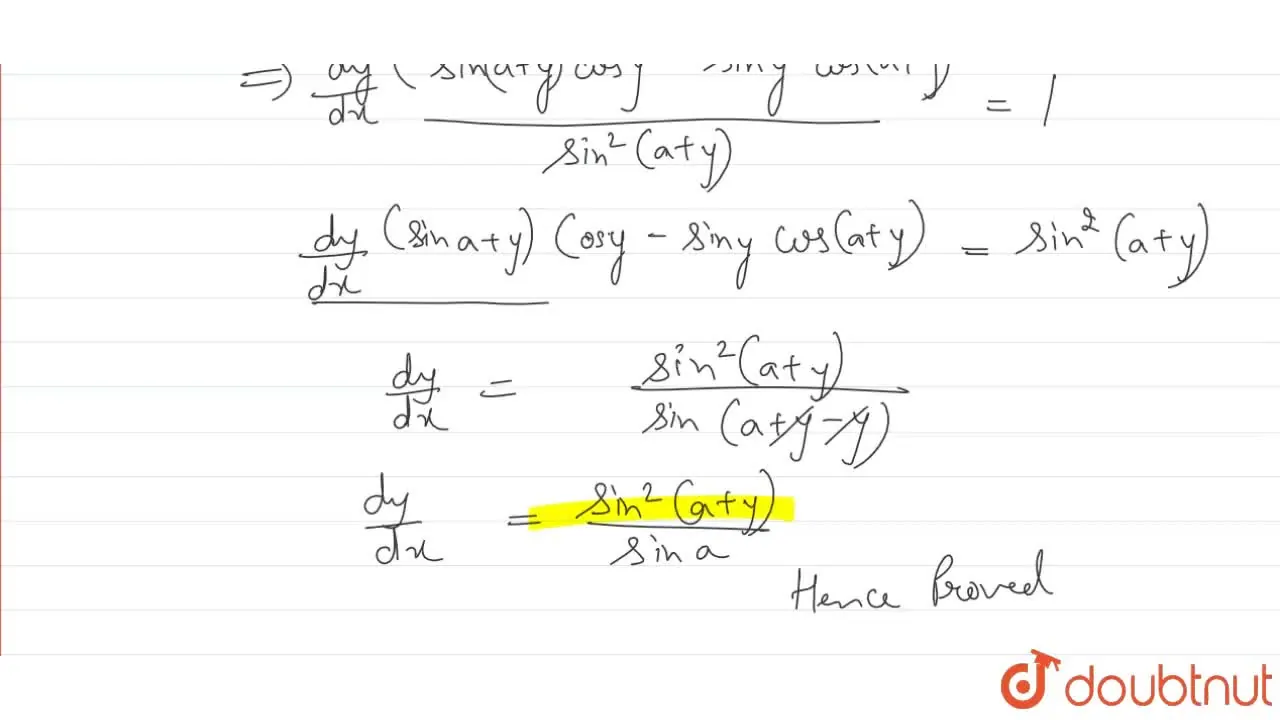 ⇒) dy/dx ( sin(a+y) cosy - siny cos(a+y) / sin²(a+y) = 1
dy/dx (sin a+y) Cosy - siny cos(a+y) = sin²(a+y)
dy/dx = sin²(a+y) / sin (a+y-y)
dy/dx = sin²(a+y) / sin a
Hence Proved
doubtnut